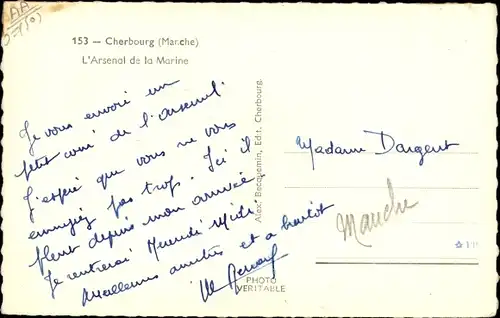 AA
153 — Cherbourg (Manche)
L'Arsenal de la Marine
Je vous envoie un
petit coin de l'arsenal.
J'espère que vous ne vous
ennuyez pas trop. Ici il
pleut depuis mon arrivée
Je rentrerai Mercredi Midi
Meilleures amitiés et a bientôt
Alex. Becquemin, Edit. Cherbourg.
PHOTO
VERITABLE
Madame Dargent
Manche